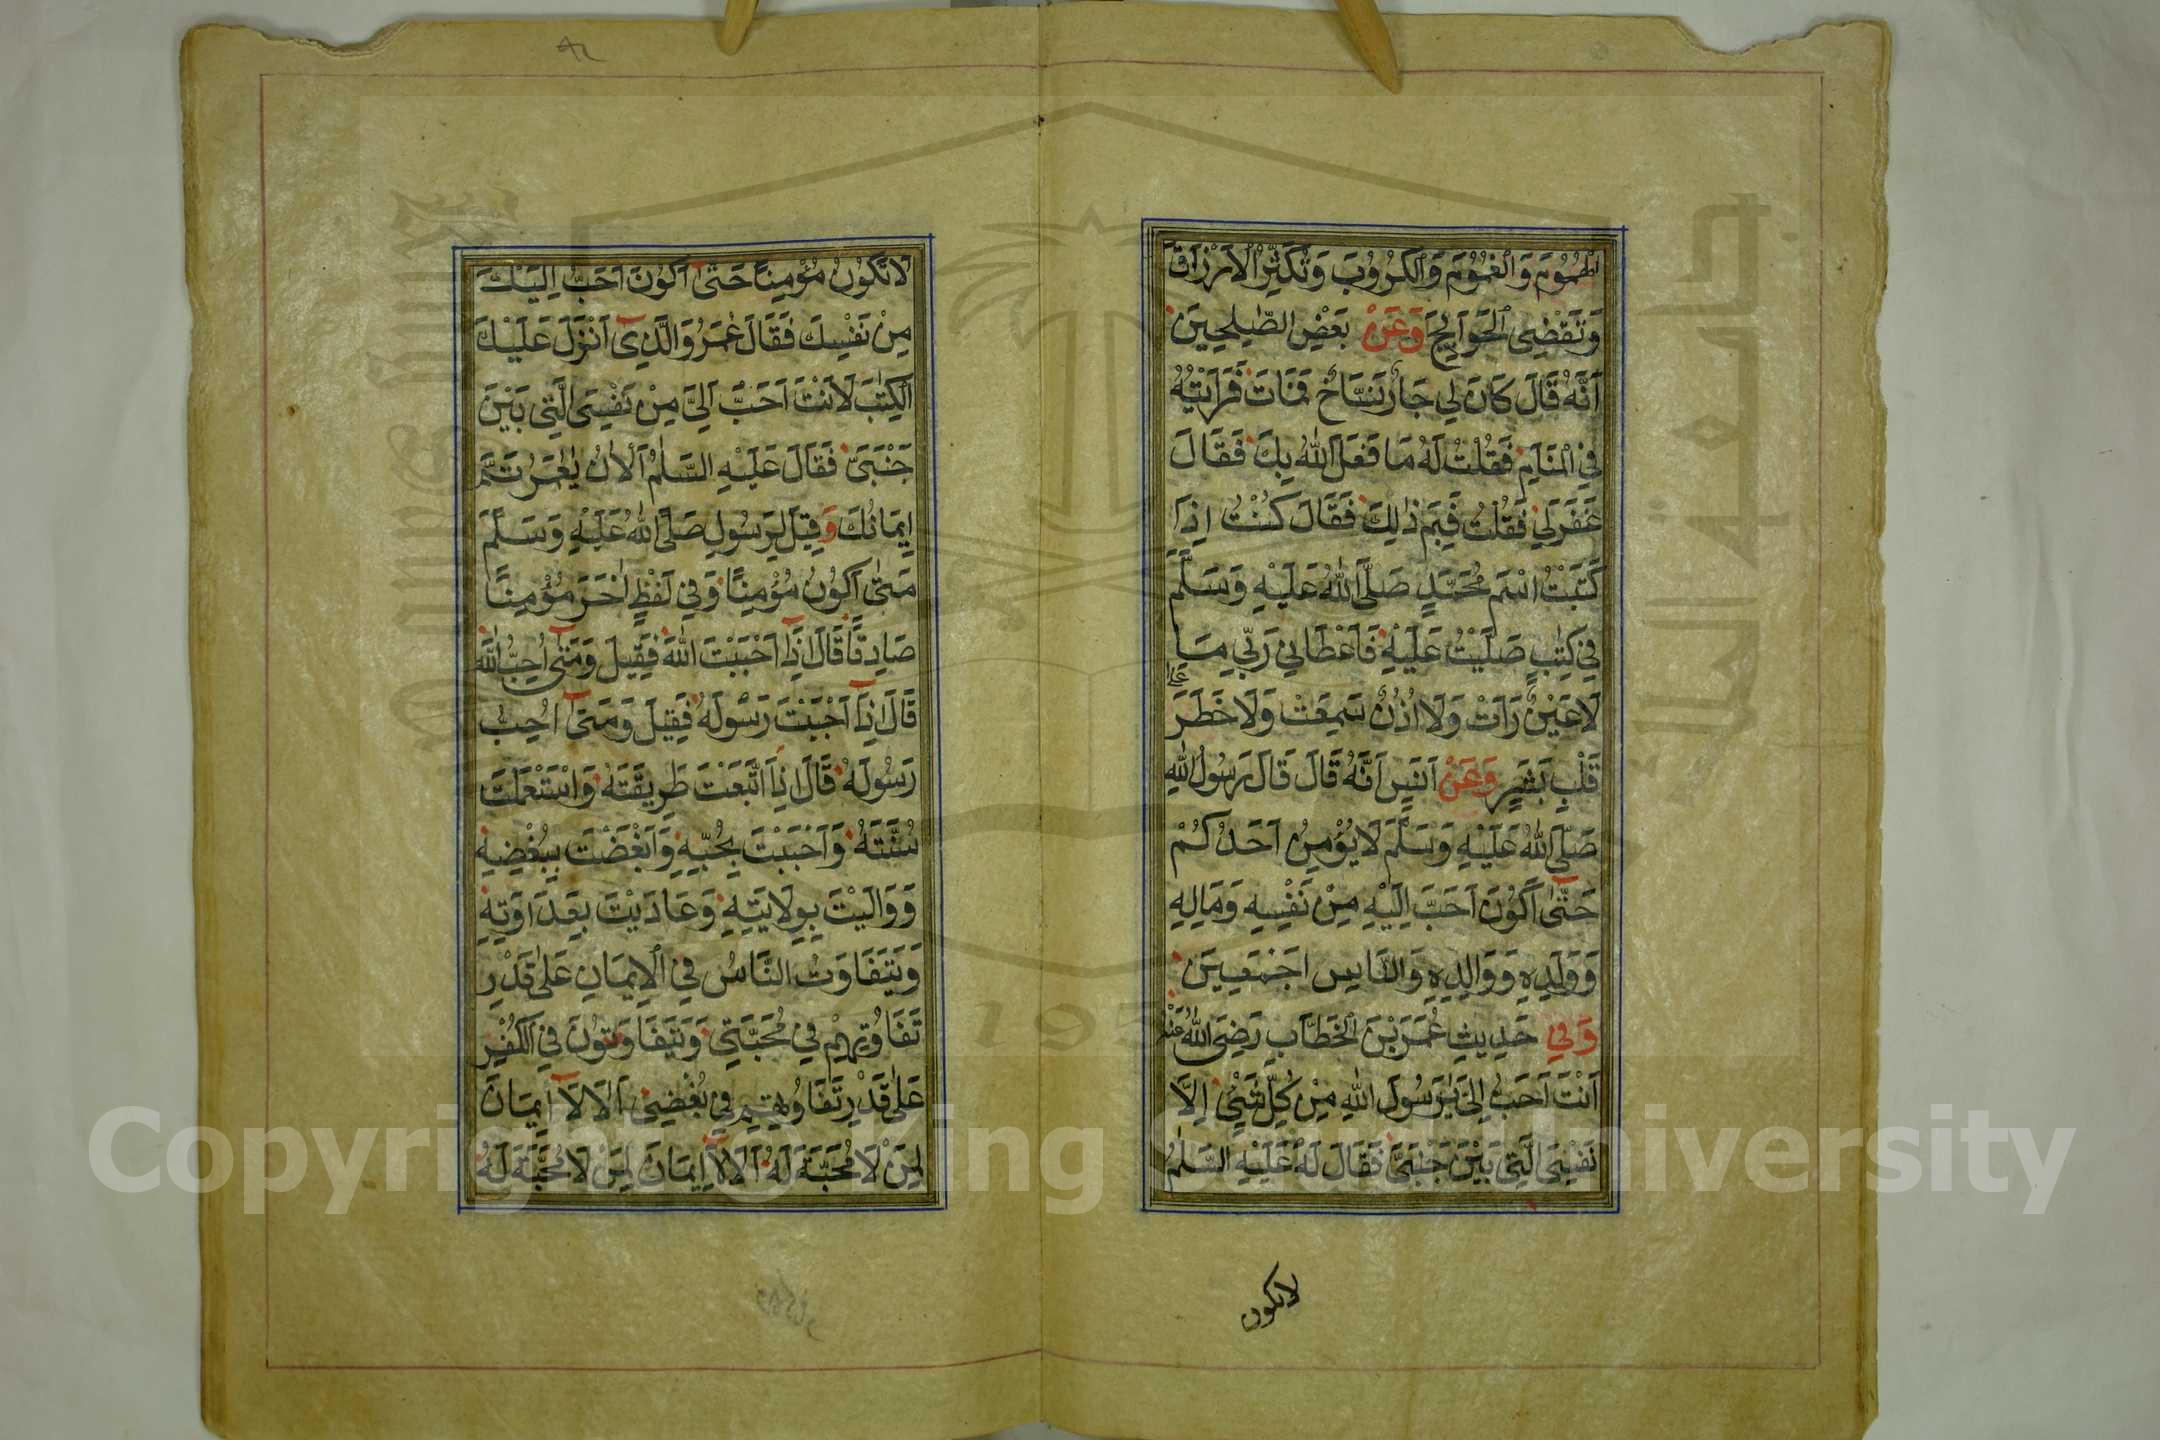 الْهُمُوْمَ وَالْغُمُوْمَ وَالْكُرُوْبَ وَتُكَثِّرُ الْاَرْزَاقَ
وَتَقْضِي الْحَوَايِجَ وَعَنْ بَعْضِ الصّٰلِحِيْنَ
اَنَّهُ قَالَ كَانَ لِي جَارٌ نَسَّاخٌ فَمَاتَ فَرَاَيْتُهُ
فِي الْمَنَامِ فَقُلْتُ لَهُ مَا فَعَلَ اللّٰهُ بِكَ فَقَالَ
غَفَرَلِي فَقُلْتُ فَبِمَ ذٰلِكَ فَقَالَ كُنْتُ اِذَا
كَتَبْتُ اسْمَ مُحَمَّدٍ صَلَّى اللّٰهُ عَلَيْهِ وَسَلَّمَ
فِي كِتٰبٍ صَلَّيْتُ عَلَيْهِ فَاَعْطَانِي رَبِّي مَا
لَا عَيْنٌ رَاَتْ وَلَا اُذُنٌ سَمِعَتْ وَلَا خَطَرَ عَلٰى
قَلْبِ بَشَرٍ وَعَنْ اَنَسٍ اَنَّهُ قَالَ قَالَ رَسُوْلُ اللّٰهِ
صَلَّى اللّٰهُ عَلَيْهِ وَسَلَّمَ لَا يُؤْمِنُ اَحَدُكُمْ
حَتّٰى اَكُوْنَ اَحَبَّ اِلَيْهِ مِنْ نَفْسِهٖ وَمَالِهٖ
وَوَلَدِهٖ وَوَالِدِهٖ وَالنَّاسِ اَجْمَعِيْنَ
وَفِي حَدِيْثِ عُمَرَ بْنِ الْخَطَّابِ رَضِيَ اللّٰهُ عَنْهُ
اَنْتَ اَحَبُّ اِلَيَّ يٰرَسُوْلَ اللّٰهِ مِنْ كُلِّ شَيْءٍ اِلَّا
نَفْسِيَ الَّتِي بَيْنَ جَنْبَيَّ فَقَالَ لَهُ عَلَيْهِ السَّلٰمُ
لاتكون
لَا تَكُوْنُ مُؤْمِنًا حَتّٰى اَكُوْنَ اَحَبَّ اِلَيْكَ
مِنْ نَفْسِكَ فَقَالَ عُمَرُ وَالَّذِيْ اَنْزَلَ عَلَيْكَ
الْكِتٰبَ لَاَنْتَ اَحَبُّ اِلَيَّ مِنْ نَفْسِيَ الَّتِي بَيْنَ
جَنْبَيَّ فَقَالَ عَلَيْهِ السَّلٰمُ اَلْاٰنَ يٰعُمَرُ تَمَّ
اِيْمَانُكَ وَقِيْلَ لِرَسُوْلِ صَلَّى اللّٰهُ عَلَيْهِ وَسَلَّمَ
مَتٰى اَكُوْنُ مُؤْمِنًا وَفِي لَفْظٍ اٰخَرَ مُؤْمِنًا
صَادِقًا قَالَ اِذَا اَحْبَبْتَ اللّٰهَ فَقِيْلَ وَمَتٰى اُحِبُّ اللّٰهَ
قَالَ اِذَا اَحْبَبْتَ رَسُوْلَهُ فَقِيْلَ وَمَتٰى اُحِبُّ
رَسُوْلَهُ قَالَ اِذَا اتَّبَعْتَ طَرِيْقَتَهُ وَاسْتَعْمَلْتَ
سُنَّتَهُ وَاَحْبَبْتَ بِحُبِّهٖ وَاَبْغَضْتَ بِبُغْضِهٖ
وَوَالَيْتَ بِوِلَايَتِهٖ وَعَادَيْتَ بِعَدَاوَتِهٖ
وَيَتَفَاوَتُ النَّاسُ فِي الْاِيْمَانِ عَلٰى قَدْرِ
تَفَاوُتِهِمْ فِي مُحَبَّتِي وَيَتَفَاوَتُوْنَ فِي الْكُفْرِ
عَلٰى قَدْرِ تَفَاوُتِهِمْ فِي بُغْضِي اَلَا لَا اِيْمَانَ
لِمَنْ لَا مُحَبَّةَ لَهُ اَلَا لَا اِيْمَانَ لِمَنْ لَا مُحَبَّةَ لَهُ
جامعة الملك سعود
1957
Copyright © King Saud University